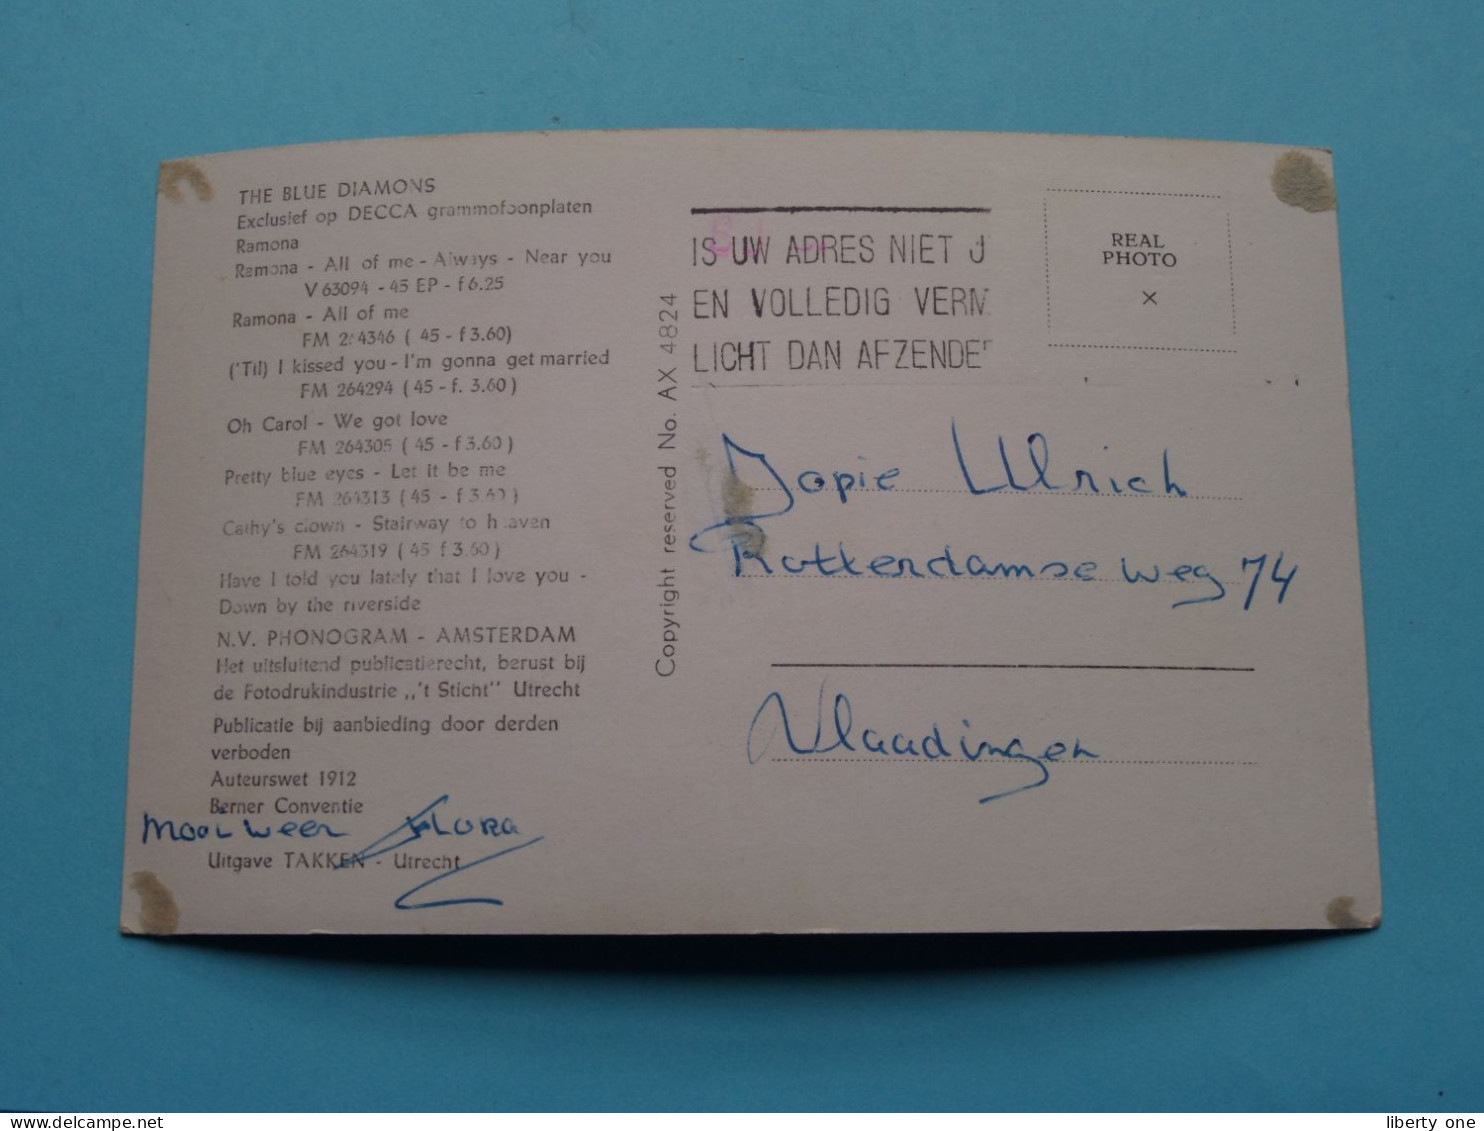 THE BLUE DIAMONS
Exclusief op DECCA grammofoonplaten
Ramona
Ramona - All of me - Always - Near you
V 63094 - 45 EP - f 6.25
Ramona - All of me
FM 2:4346 ( 45 - f 3.60)
('Til) I kissed you - I'm gonna get married
FM 264294 ( 45 - f. 3.60 )
Oh Carol - We got love
FM 264305 ( 45 - f 3.60 )
Pretty blue eyes - Let it be me
FM 264313 ( 45 - f 3.60 )
Cathy's clown - Stairway to heaven
FM 264319 ( 45 f 3.60 )
Have I told you lately that I love you -
Down by the riverside
N.V. PHONOGRAM - AMSTERDAM
Het uitsluitend publicatierecht, berust bij
de Fotodrukindustrie „'t Sticht'' Utrecht
Publicatie bij aanbieding door derden
verboden
Auteurswet 1912
Berner Conventie
Mooi weer Flora
Uitgave TAKKEN - Utrecht
Copyright reserved No. AX 4824
IS UW ADRES NIET J
EN VOLLEDIG VERM
LICHT DAN AFZENDER
REAL
PHOTO
X
Jopie Ulrich
Rotterdamse weg 74
Vlaadingen
www.delcampe.net
liberty one